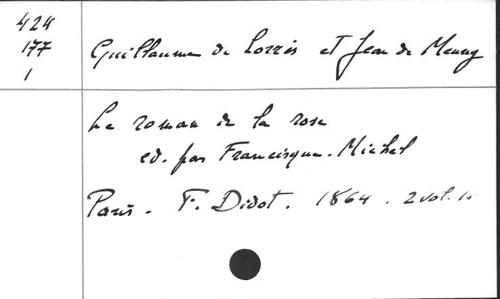 424
177
1
Guillaume de Lorris et Jean de Meung
Le roman de la rose
ed. par Francisque-Michel
Paris. F. Didot. 1864. 2 vol.